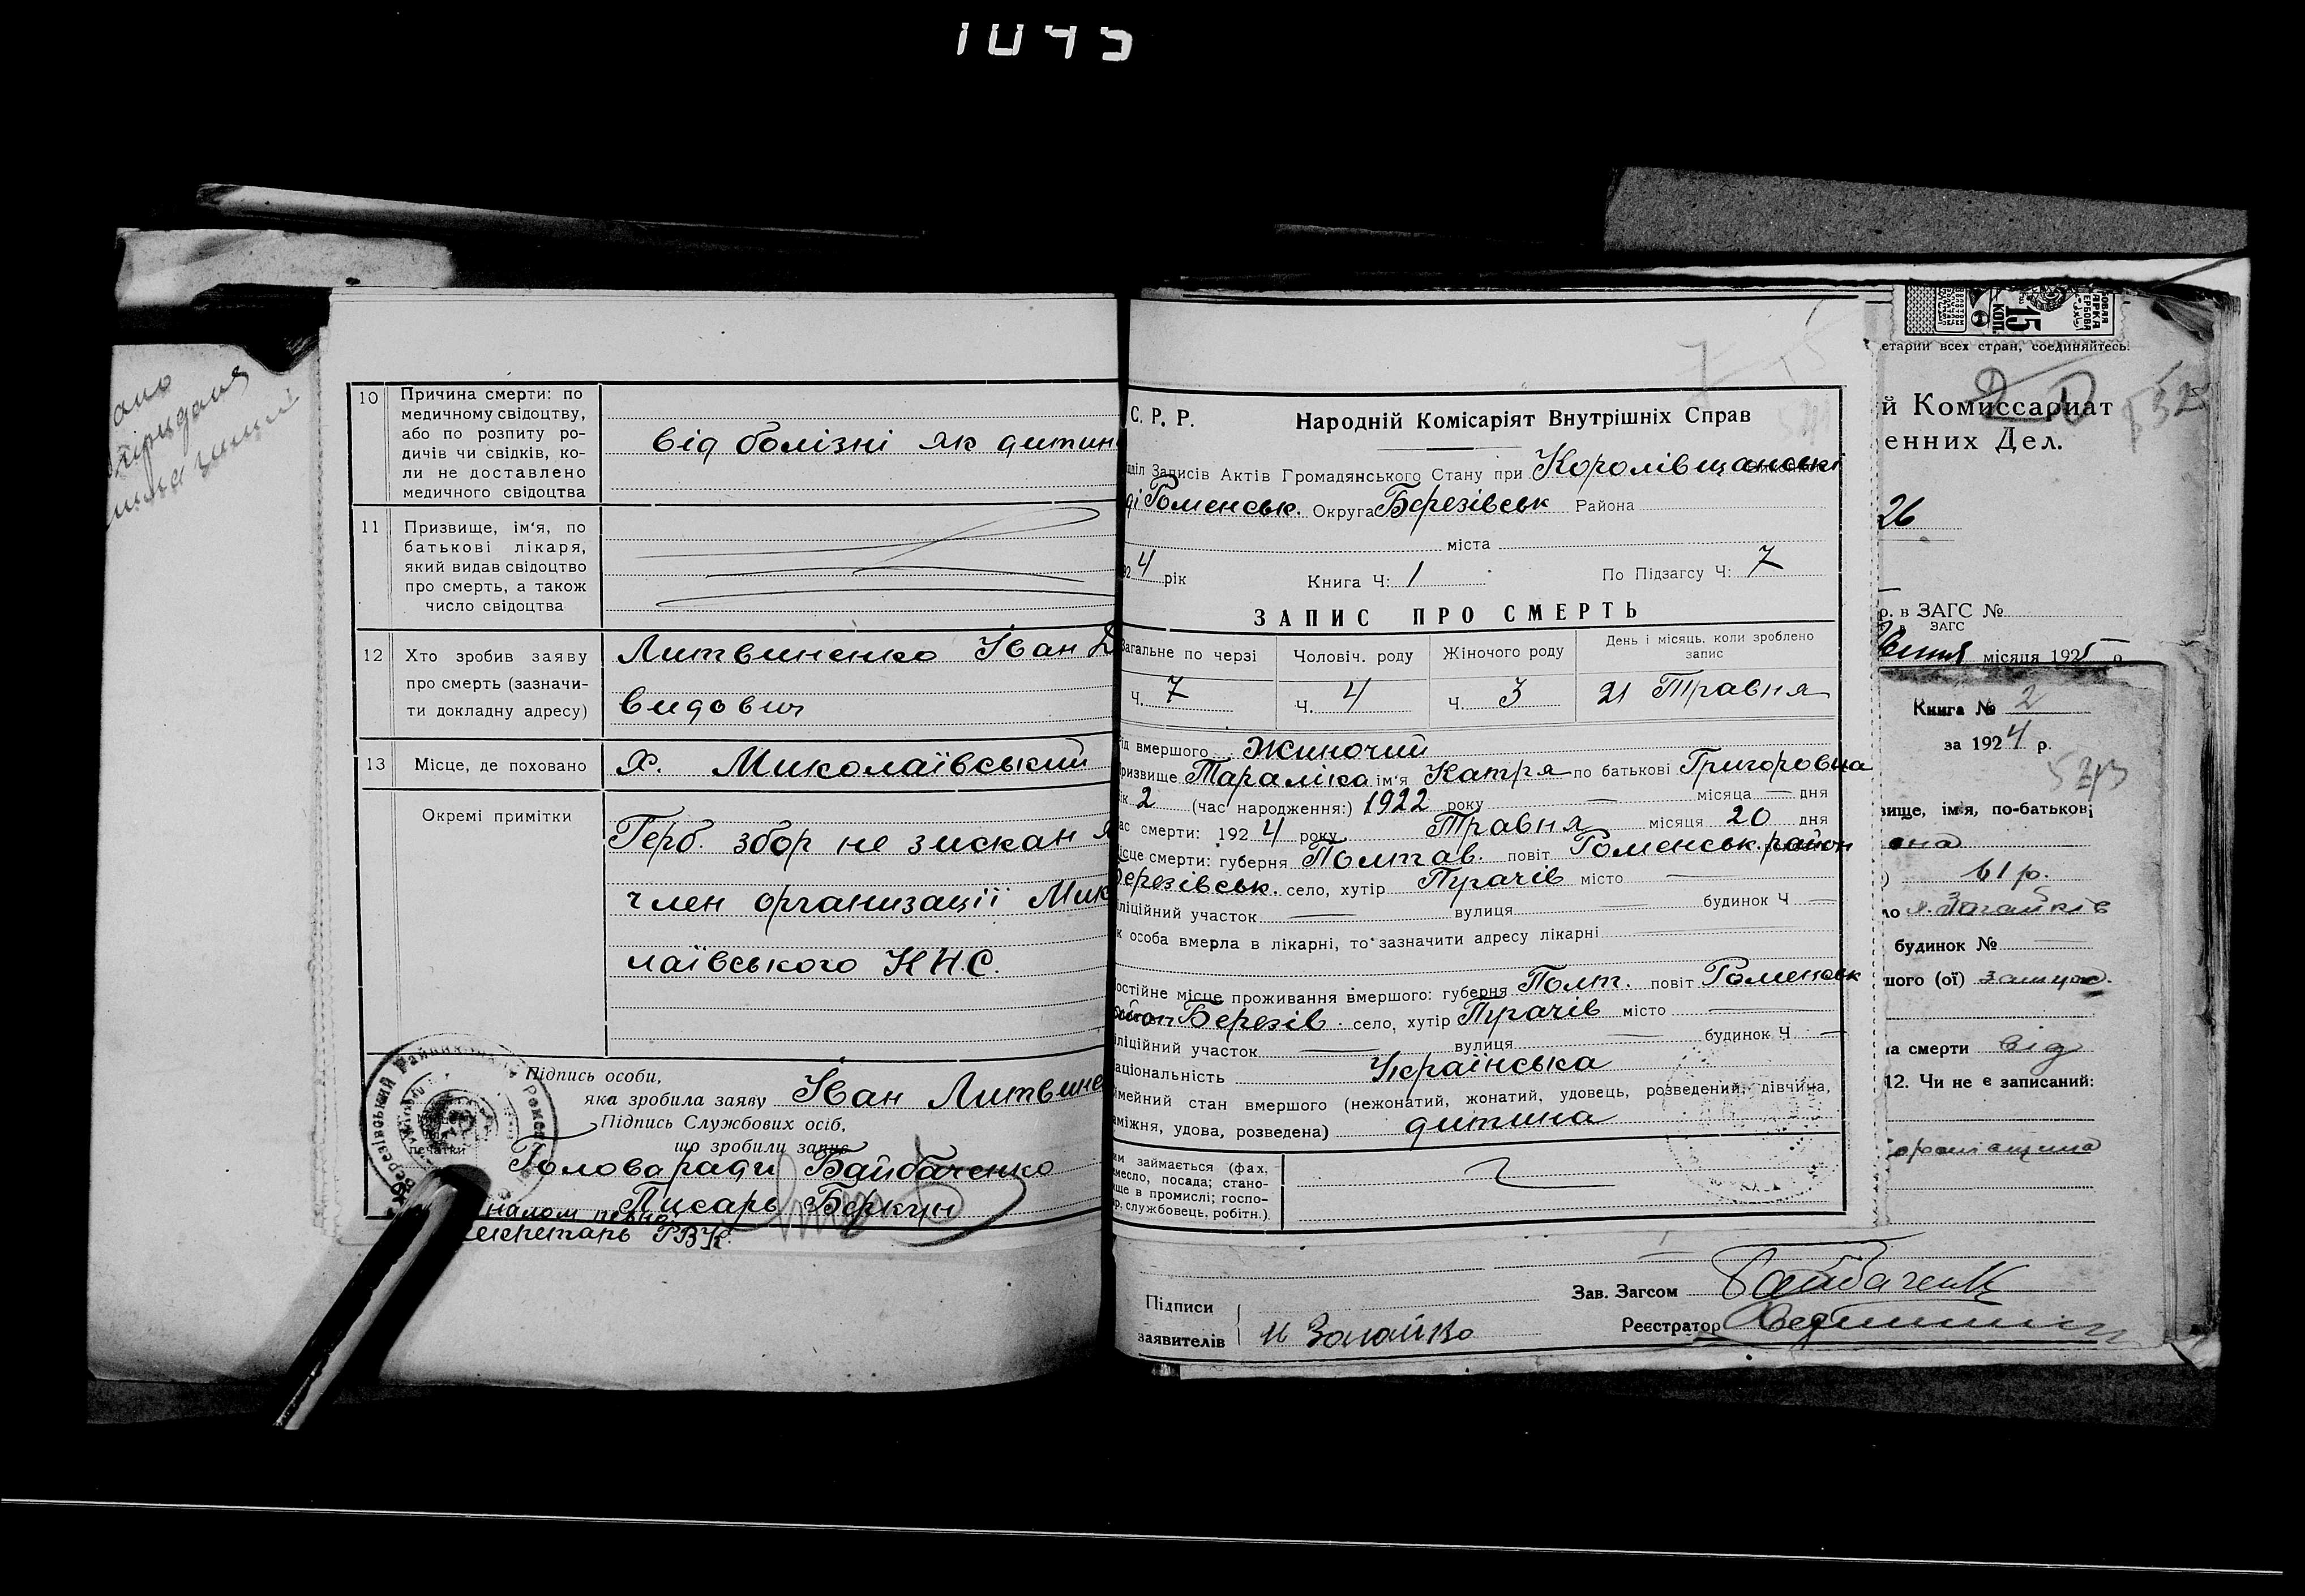 1045
10 Причина смерти: по
медичному свідоцтву,
або по розпиту ро-
дичів чи свідків, ко-
ли не доставлено
медичного свідоцтва
від болізні як дитин
11 Призвище, ім'я, по
батькові лікаря,
який видав свідоцтво
про смерть, а також
число свідоцтва
12 Хто зробив заяву
про смерть (зазначи-
ти докладну адресу)
Литвиненко Іван Д
видович
13 Місце, де поховано
х. Миколаївський
Окремі примітки
Герб. збор не зискан я
член организації Мик
лаївського К.Н.С.
Підпись особи,
яка зробила заяву Іван Литвине
Підпись Службових осіб,
що зробили запис
Голова ради Байбаченко
Писарь Беркун
екретарь РВК.
С. Р. Р. Народній Комісаріят Внутрішніх Справ
діл Записів Актів Громадянського Стану при Королівщанські
ді Роменськ. Округа Березівськ Района
міста
924 рік Книга Ч: 1 По Підзагсу Ч: 7
ЗАПИС ПРО СМЕРТЬ
Загальне по черзі Чоловіч. роду Жіночого роду День і місяць, коли зроблено
запис
Ч. 7 Ч. 4 Ч. 3 21 Травня
ід вмершого Жиночий
ризвище Тараліка ім'я Катря по батькові Григоровна
ік 2 (час народження:) 1922 року — місяца — дня
ас смерти: 1924 року Травня місяца 20 дня
ісце смерти: губерня Полтав. повіт Роменськ. район
Березівськ. село, хутір Пугачів місто —
іліційний участок — вулиця будинок Ч —
к особа вмерла в лікарні, то зазначити адресу лікарні
остійне місце проживання вмершого: губерня Полт. повіт Роменськ
Березів. село, хутір Пугачів місто —
іліційний участок — вулиця будинок Ч —
аціональність Українська
імейний стан вмершого (нежонатий, жонатий, удовець, розведений, дівчина,
аміжня, удова, розведена) дитина
им займається (фах,
месло, посада; стано-
ище в промислі; госпо-
р, службовець, робітн.)
Підписи
заявителів
Зав. Загсом Байбаченк
Реєстратор
15 КОП.
етарии всех стран, соединяйтесь!
й Комиссариат
енних Дел.
26
р. в ЗАГС №
ЗАГС
місяця 1925 р.
Книга № 2
за 1924 р.
вище, ім'я, по-батькові
61 р.
будинок №
шого (ої)
а смерти від
12. Чи не є записаний: